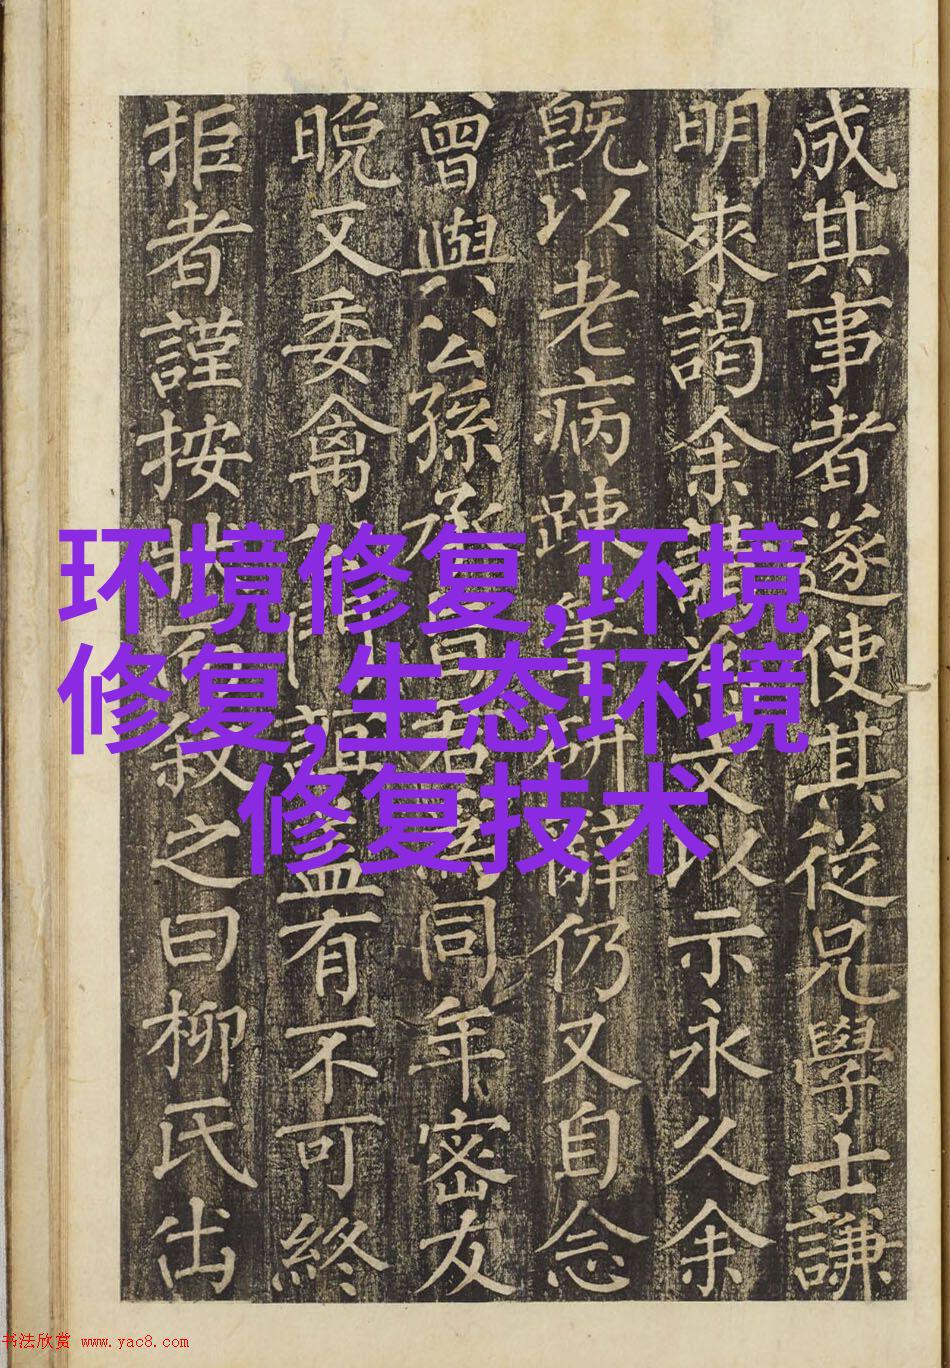 成其事者遂使其從兄學士謙
明來謁余文以示永久余
既以老病疎筆研辭仍又自念
曾與公孫承君同年密友
晚又委禽門誼盖有不可終
拒者謹按狀而叙之曰柳氏出
环境修复,环境
修复,生态环境
修复技术
书法欣赏 www.yac8.com